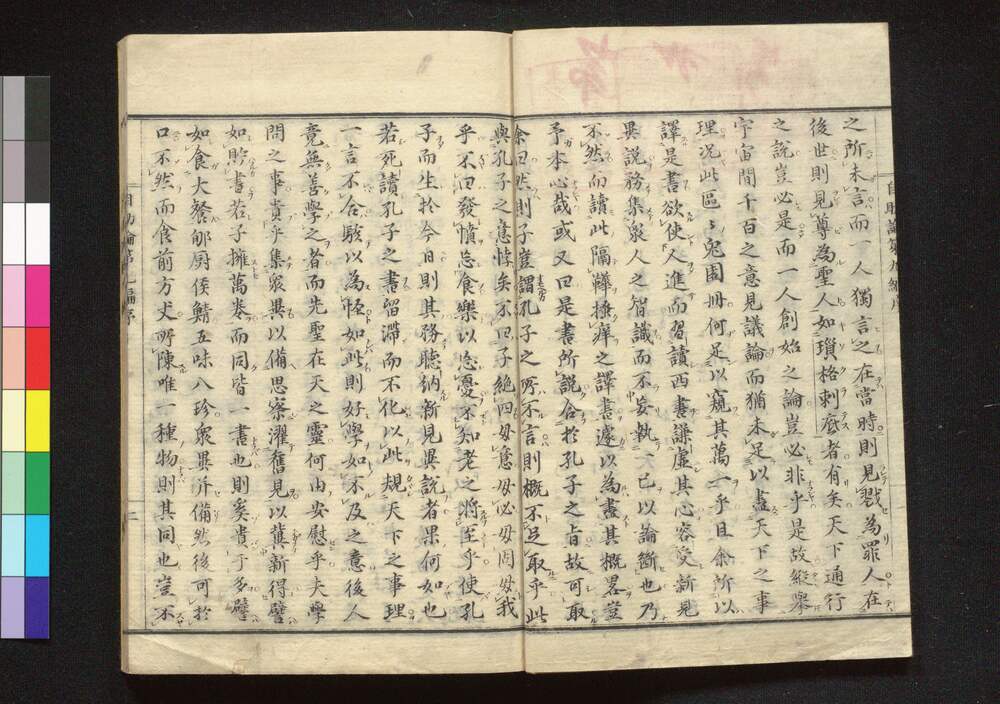 自助論第九編序
之所未言而一人獨言之在當時則見戮為罪人在
後世則見尊為聖人如瑣格刺底者有矣天下通行
之說豈必是而一人創始之論豈必非乎是故縱舉
宇宙間千百之意見議論而猶未足以盡天下之事
理况此區〻兔園冊何足以窺其萬一乎且余所以
譯是書欲使人進而習讀西書謙虛其心容受新見
異說務集衆人之智識而不妄執一己以論斷也乃
不然而讀此隔鞾搔癢之譯書遽以為盡其概畧豈
予本心哉或又曰是書所說合於孔子之旨故可取
余曰然則子豈謂孔子之所不言則概不足取乎此
與孔子之意悖矣不曰子絕四毋意毋必毋固毋我
乎不曰發憤忘食樂以忘憂不知老之將至乎使孔
子而生於今日則其務聽納新見異說者果何如也
若死讀孔子之書留滯而不化以此規天下之事理
一言不合駭以為怪如此則好學如不及之意後人
竟無善學之者而先聖在天之靈何由安慰乎夫學
問之事貴乎集衆異以備思察濯舊見以冀新得譬
如貯書若子擁萬卷而同皆一書也則奚貴于多譬
如食大餐郇厨侯鯖五味八珍衆異并備然後可於
口不然而食前方丈所陳唯一種物則其同也豈不
自助論第九編序
二